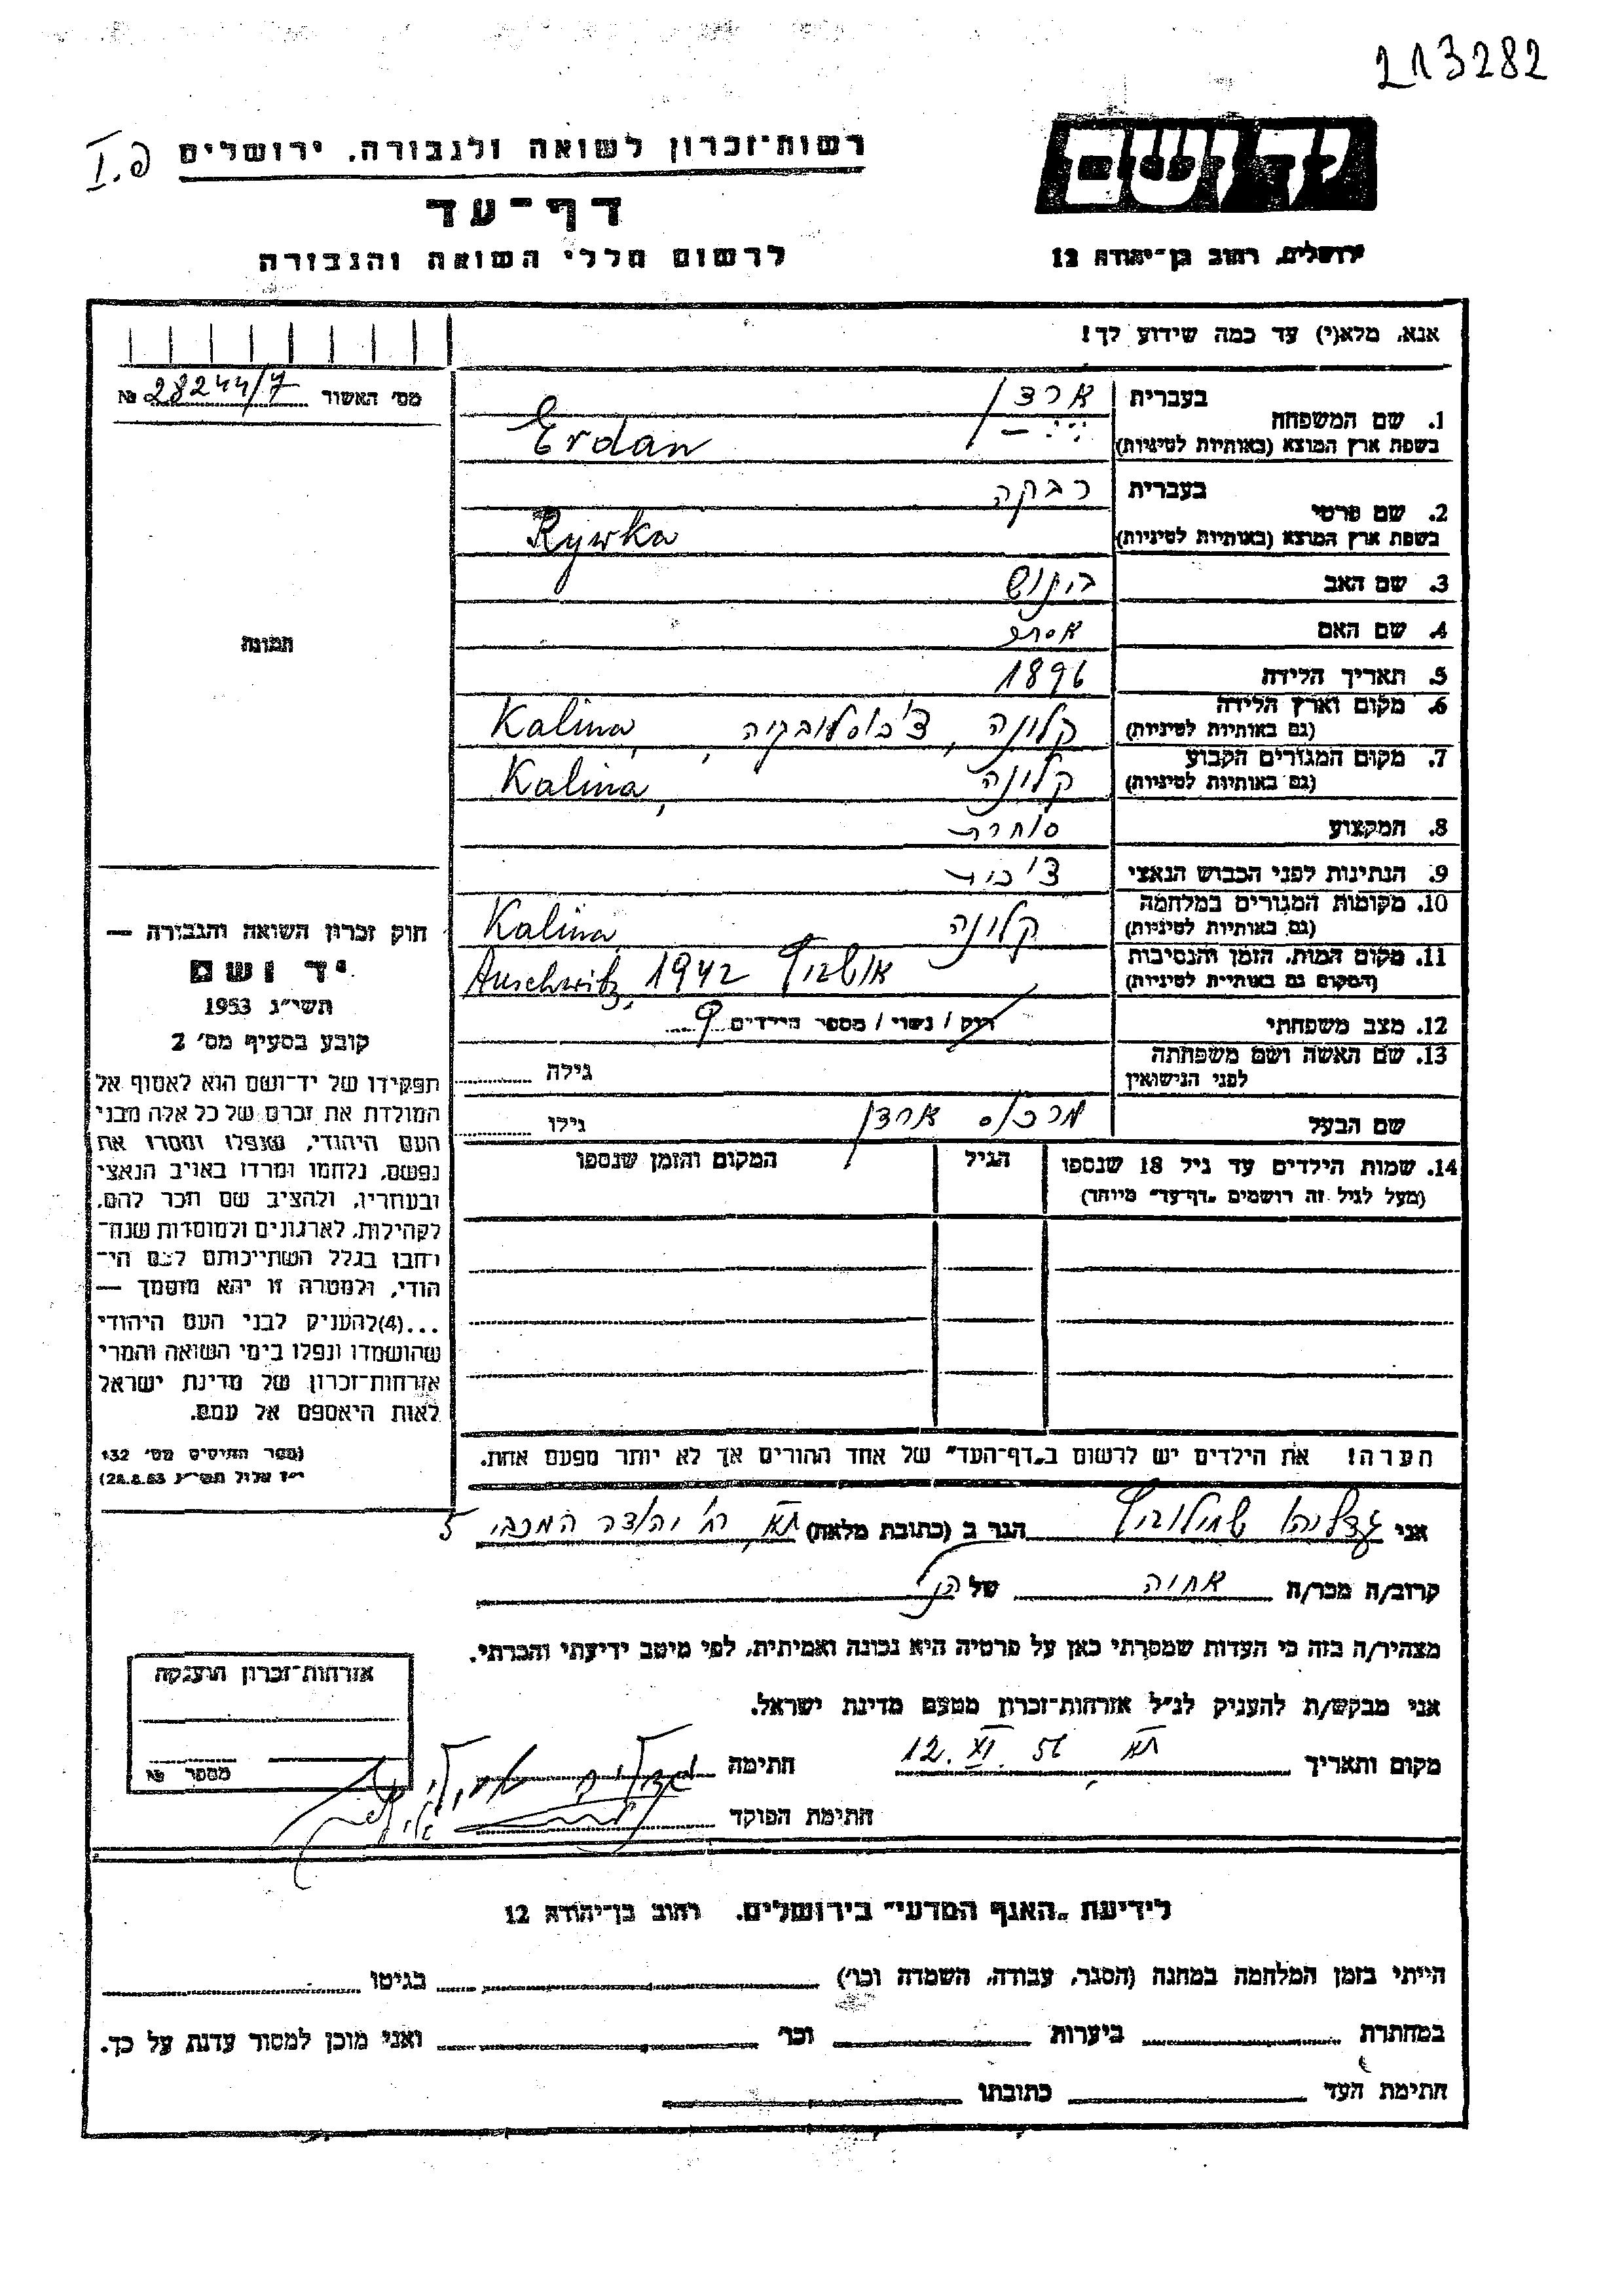 213282
יד ושם
ירושלים, רחוב בן־יהודה 12
רשות־זכרון לשואה ולגבורה, ירושלים
דף־עד
לרשום חללי השואה והגבורה
אנא, מלא(י) עד כמה שידוע לך!
מס׳ האשור № 28244/7
1. שם המשפחה
בעברית ארדן
בשפת ארץ המוצא (באותיות לטיניות) Erdan
2. שם פרטי
בעברית רבקה
בשפת ארץ המוצא (באותיות לטיניות) Rywka
3. שם האב
4. שם האם אסתר
5. תאריך הלידה 1896
6. מקום וארץ הלידה קלינה, צ'כוסלובקיה, Kalina,
(גם באותיות לטיניות)
7. מקום המגורים הקבוע קלינה Kalina,
(גם באותיות לטיניות)
8. המקצוע סוחרת
9. הנתינות לפני הכבוש הנאצי צ'כית
10. מקומות המגורים במלחמה קלינה Kalina
(גם באותיות לטיניות)
11. מקום המות, הזמן והנסיבות אושביץ 1942 Auschwitz,
(המקום גם באותיות לטיניות)
12. מצב משפחתי רוק / נשוי / מספר הילדים 9
13. שם האשה ושם משפחתה
לפני הנישואין
גילה
שם הבעל מרכוס ארדן גילו
14. שמות הילדים עד גיל 18 שנספו
(מעל לגיל זה רושמים „דף־עד” מיוחד)
הגיל
המקום והזמן שנספו
הערה! את הילדים יש לרשום ב„דף־העד” של אחד ההורים אך לא יותר מפעם אחת.
תמונה
חוק זכרון השואה והגבורה —
יד ושם
תשי״ג 1953
קובע בסעיף מס׳ 2
תפקידו של יד־ושם הוא לאסוף אל
המולדת את זכרם של כל אלה מבני
העם היהודי, שנפלו ומסרו את
נפשם, נלחמו ומרדו באויב הנאצי
ובעוזריו, ולהציב שם וזכר להם,
לקהילות, לארגונים ולמוסדות שנח־
רבו בגלל השתייכותם לעם הי־
הודי, ולמטרה זו יהא מוסמך —
...(4)להעניק לבני העם היהודי
שהושמדו ונפלו בימי השואה והמרי
אזרחות־זכרון של מדינת ישראל
לאות היאספם אל עמם.
(ספר החוקים מס׳ 132
י״ז אלול תשי״ג 28.8.53)
אני גדליהו שמילוביץ הגר ב (כתובת מלאה) ת"א, רח' יהודה המכבי 5
קרוב/ה מכר/ה אחיה של הנ"ל
מצהיר/ה בזה כי העדות שמסרתי כאן על פרטיה היא נכונה ואמיתית, לפי מיטב ידיעתי והכרתי.
אני מבקש/ת להעניק לנ״ל אזרחות־זכרון מטעם מדינת ישראל.
מקום ותאריך ת"א, 12. XI. 56 חתימה
חתימת הפוקד
אזרחות־זכרון הוענקה
מספר №
לידיעת „האגף המדעי” בירושלים, רחוב בן־יהודה 12
הייתי בזמן המלחמה במחנה (הסגר, עבודה, השמדה וכו׳) בגיטו
במחתרת ביערות וכו׳ ואני מוכן למסור עדות על כך.
חתימת העד כתובתו